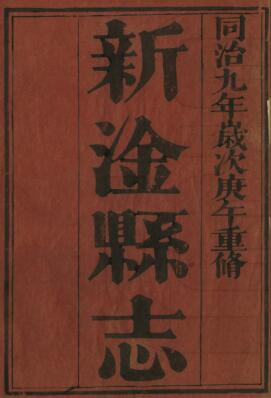 同治九年歲次庚午重脩
新淦縣志